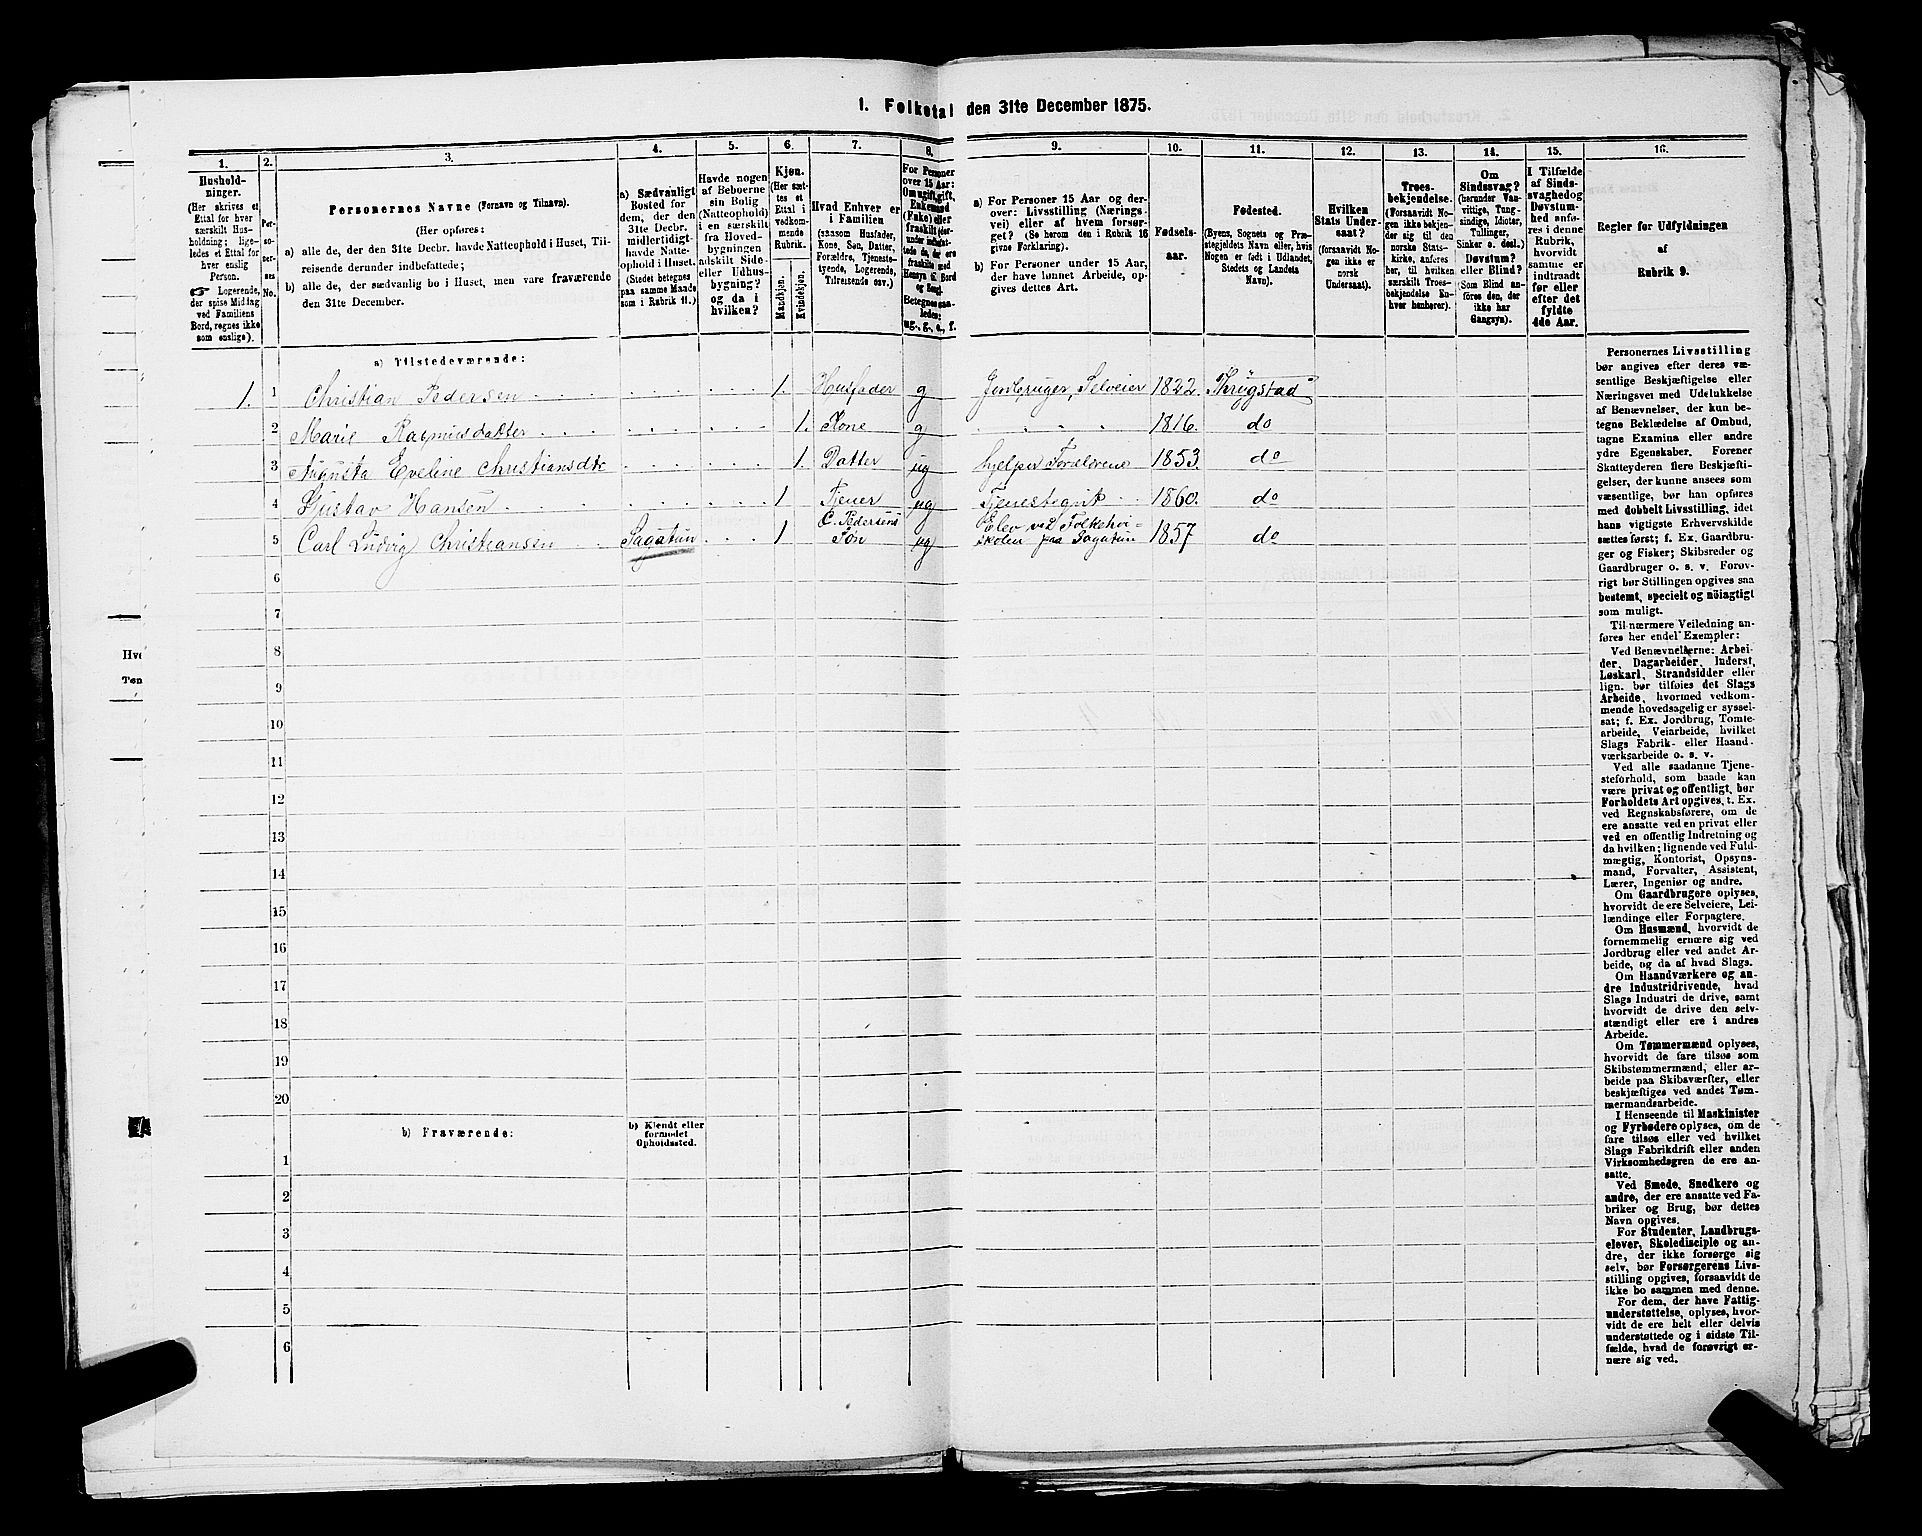 1. Folketal den 31te December 1875.
1. 2. 3. 4. 5. 6. 7. 8. 9. 10. 11. 12. 13. 14. 15. 16.
Hushold-
ninger.
(Her skrives et
Ettal for hver
særskilt Hus-
holdning; lige-
ledes et Ettal for
hver enslig
Person.
☞ Logerende,
der spise Middag
ved Familiens
Bord, regnes ikke
som enslige).
Per-
so-
ner-
nes
No.
Personernes Navne (Fornavn og Tilnavn).
(Her opføres:
a) alle de, der den 31te Decbr. havde Natteophold i Huset, Til-
reisende derunder indbefattede;
b) alle de, der sædvanlig bo i Huset, men vare fraværende
den 31te December.
a) Sædvanligt
Bosted for
dem, der den
31te Decbr.
midlertidigt
havde Natte-
ophold i Huset.
(Stedet betegnes
paa samme Maade
som i Rubrik 11.)
Havde nogen
af Beboerne
sin Bolig
(Natteophold)
i en særskilt
fra Hoved-
bygningen
adskilt Side-
eller Udhus-
bygning?
og da i
hvilken?
Kjøn.
(Her sæt-
tes et
Ettal i
vedkom-
mende
Rubrik.
Mandkjøn.
Kvindekjøn.
Hvad Enhver er
i Familien
(saasom Husfader,
Kone, Søn, Datter,
Forældre, Tjeneste-
tyende, Logerende,
Tilreisende osv.)
For Personer
over 15 Aar:
Om ugift, gift,
Enkemand
(Enke) eller
fraskilt
Betegnes saa-
ledes:
ug., g., e., f.
a) For Personer 15 Aar og der-
over: Livsstilling (Nærings-
vei) eller af hvem forsør-
get? (Se herom den i Rubrik 16
givne Forklaring).
b) For Personer under 15 Aar,
der have lønnet Arbeide, op-
gives dettes Art.
Fødsels-
aar.
Fødested.
(Byens, Sognets og Præ-
stegjeldets Navn eller, hvis
Nogen er født i Udlandet,
Stedets og Landets
Navn).
Hvilken
Stats Under-
saat?
(forsaavidt No-
gen ikke er
norsk
Undersaat).
Troes-
bekjendelse.
(Forsaavidt No-
gen ikke bekjen-
der sig til den
norske Stats-
kirke, anføres
her, til hvilken
særskilt Troes-
bekjendelse En-
hver henhører).
Om
Sindssvag?
(herunder Van-
vittige, Tung-
sindige, Idioter,
Tullinger,
Sinker o. desl.)
Døvstum?
eller Blind?
(Som Blind an-
føres den, der
ikke har
Gangsyn).
I Tilfælde
af Sinds-
svaghed og
Døvstum-
hed anfø-
res i denne
Rubrik,
hvorvidt
samme er
indtraadt
før eller
efter det
fyldte
4de Aar.
Regler for Udfyldningen
af
Rubrik 9.
a) Tilstedeværende:
1. 1 Christian Pedersen 1. Husfader g Jordbruger, Selveier 1822. Thrygstad
2 Marie Rasmusdatter 1. Kone g 1816. do
3 Augusta Eveline Christiansdtr 1. Datter ug hjelper Forældrene 1853. do
4 Gustav Hansen 1 Tjener ug Tjenestegut 1860. do
5 Carl Ludvig Christiansen Sagatun 1 C. Pedersens Søn ug Elev ved Folkehøi-
skolen paa Sagatun 1857 do
6
7
8
9
10
11
12
13
14
15
16
17
18
19
20
b) Fraværende:
b) Kjendt eller
formodet
Opholdssted.
1
2
3
4
5
6
Personernes Livsstilling
bør angives efter deres væ-
sentlige Beskjæftigelse eller
Næringsvei med Udelukkelse
af Benævnelser, der kun be-
tegne Beklædelse af Ombud,
tagne Examina eller andre
ydre Egenskaber. Forener
Skatteyderen flere Beskjæfti-
gelser, der kunne ansees som
væsentlige, bør han opføres
med dobbelt Livsstilling, idet
hans vigtigste Erhvervskilde
sættes først; f. Ex. Gaardbru-
ger og Fisker; Skibsreder og
Gaardbruger o. s. v. Forøv-
rigt bør Stillingen opgives saa
bestemt, specielt og nöiagtigt
som muligt.
Til nærmere Veiledning an-
føres her endel Exempler:
Ved Benævnelserne: Arbei-
der, Dagarbeider, Inderst,
Løskarl, Strandsidder eller
lign. bør tilføies det Slags
Arbeide, hvormed vedkom-
mende hovedsagelig er syssel-
sat; f. Ex. Jordbrug, Tomte-
arbeide, Veiarbeide, hvilket
Slags Fabrik- eller Haand-
værksarbeide o. s. v.
Ved alle saadanne Tjene-
steforhold, som baade kan
være privat og offentligt, bør
Forholdets Art opgives, t. Ex.
ved Regnskabsførere, om de
ere ansatte ved en privat eller
ved en offentlig Indretning og
da hvilken; lignende ved Fuld-
mægtig, Kontorist, Opsyns-
mand, Forvalter, Assistent,
Lærer, Ingeniør og andre.
Om Gaardbrugere oplyses,
hvorvidt de ere Selveiere, Lei-
lændinge eller Forpagtere.
Om Husmænd, hvorvidt de
fornemmelig ernære sig ved
Jordbrug eller ved andet Ar-
beide, og da af hvad Slags.
Om Haandværkere og an-
dre Industridrivende, hvad
Slags Industri de drive, samt
hvorvidt de drive den selv-
stændigt eller ere i andres
Arbeide.
Om Tømmermænd oplyses,
hvorvidt de fare tilsøs som
Skibstømmermænd, eller ar-
beide paa Skibsværfter, eller
beskjæftiges ved andet Tøm-
mermandsarbeide.
I Henseende til Maskinister
og Fyrbødere oplyses, om de
fare tilsøs eller ved hvilket
Slags Fabrikdrift eller anden
Virksomhedsgren de ere an-
satte.
Ved Smede, Snedkere og
andre, der ere ansatte ved Fa-
briker og Brug, bør dettes
Navn opgives.
For Studenter, Landbrugs-
elever, Skoledisciple og an-
dre, der ikke forsørge sig
selv, bør Forsørgerens Livs-
stilling opgives, forsaavidt de
ikke bo sammen med denne.
For dem, der have Fattig-
understøttelse, oplyses, hvor-
vidt de ere helt eller delvis
understøttede og i sidste Til-
fælde, hvad de forøvrigt er-
nære sig ved.
Hve
Tøn